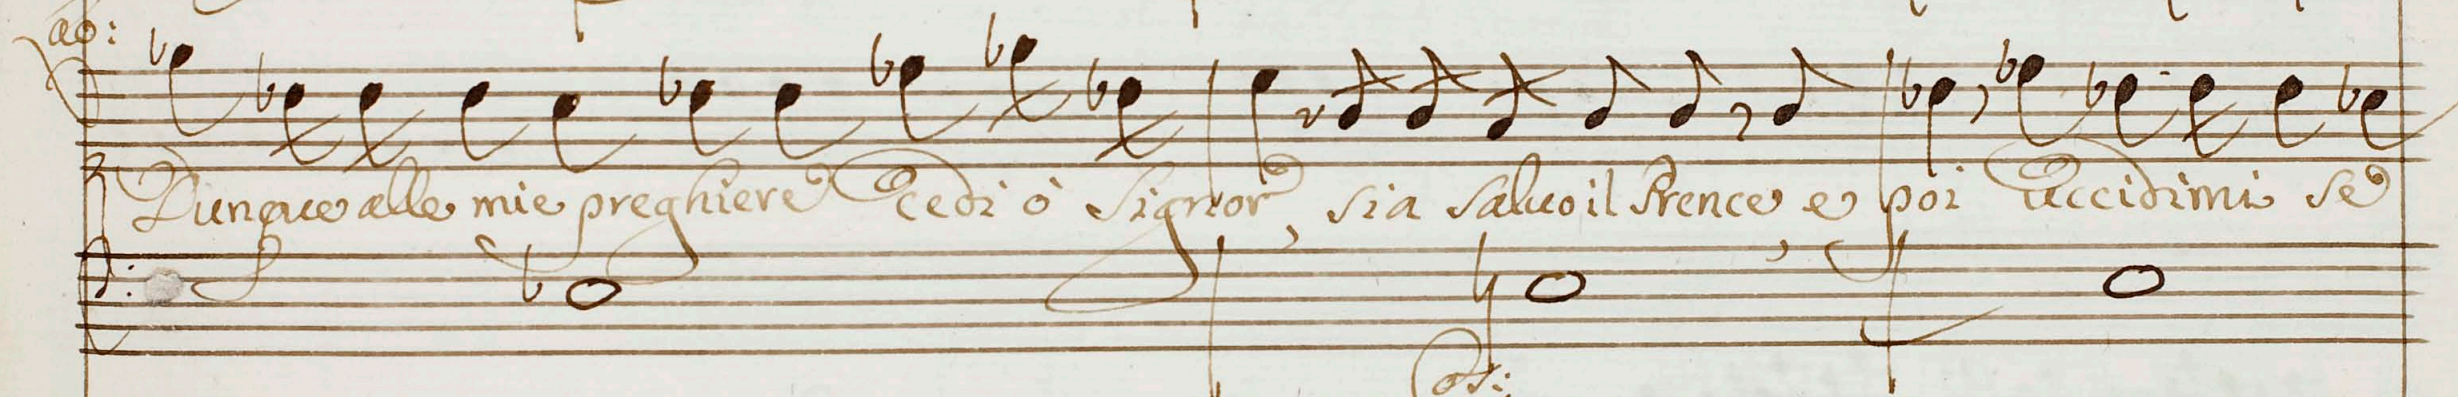 ao:
Dunque alle mie preghiere cedi ò Signor sia saluo il Prence e poi uccidimi se